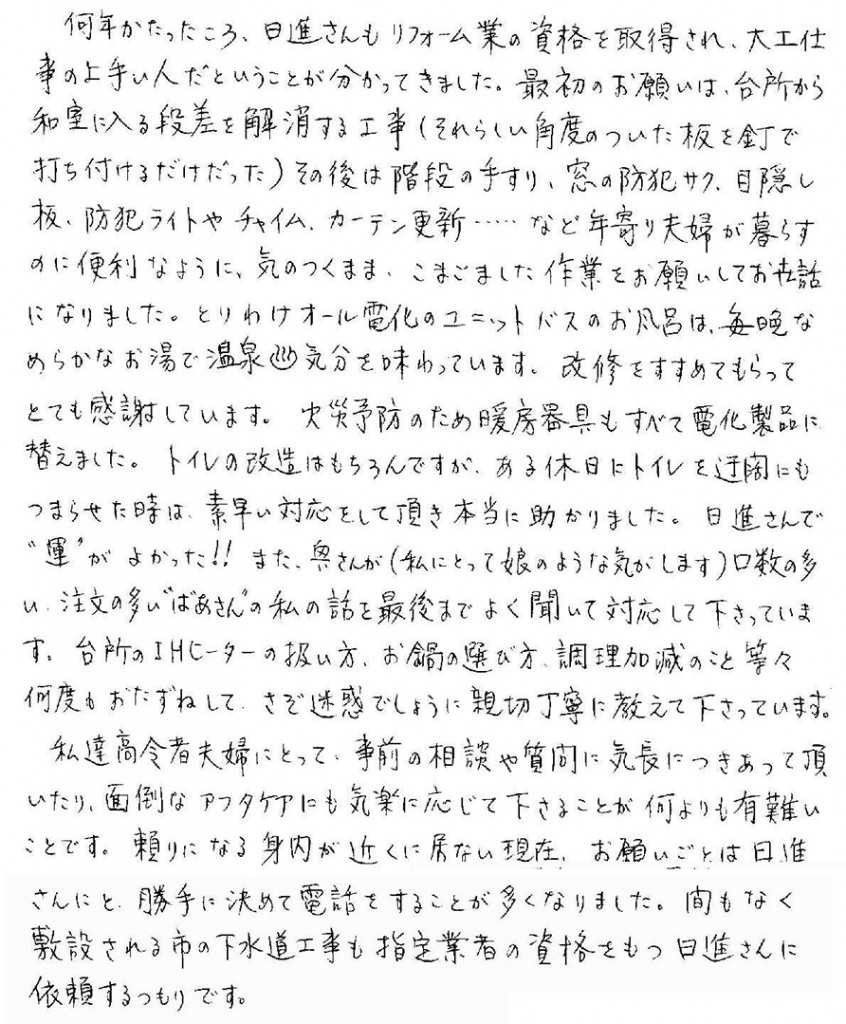 何年かたったころ、日進さんもリフォーム業の資格を取得され、大工仕
事の上手い人だということが分かってきました。最初のお願いは、台所から
和室に入る段差を解消する工事(それらしい角度のついた板を釘で
打ち付けるだけだった)その後は階段の手すり、窓の防犯サク、目隠し
板、防犯ライトやチャイム、カーテン更新……など年寄り夫婦が暮らす
のに便利なように、気のつくまま、こまごました作業をお願いしてお世話
になりました。とりわけオール電化のユニットバスのお風呂は、毎晩な
めらかなお湯で温泉♨気分を味わっています。改修をすすめてもらって
とても感謝しています。火災予防のため暖房器具もすべて電化製品に
替えました。トイレの改造はもちろんですが、ある休日にトイレを迂闊にも
つまらせた時は、素早い対応をして頂き本当に助かりました。日進さんで
“運”がよかった!!また、奥さんが(私にとって娘のような気がします)口数の多
い、注文の多い“ばあさん”の私の話を最後までよく聞いて対応して下さっていま
す。台所のIHヒーターの扱い方、お鍋の選び方、調理加減のこと等々
何度もおたずねして、さぞ迷惑でしょうに親切丁寧に教えて下さっています。
私達高令者夫婦にとって、事前の相談や質問に気長につきあって頂
いたり、面倒なアフタケアにも気楽に応じて下さることが何よりも有難い
ことです。頼りになる身内が近くに居ない現在、お願いごとは日進
さんにと、勝手に決めて電話をすることが多くなりました。間もなく
敷設される市の下水道工事も指定業者の資格をもつ日進さんに
依頼するつもりです。